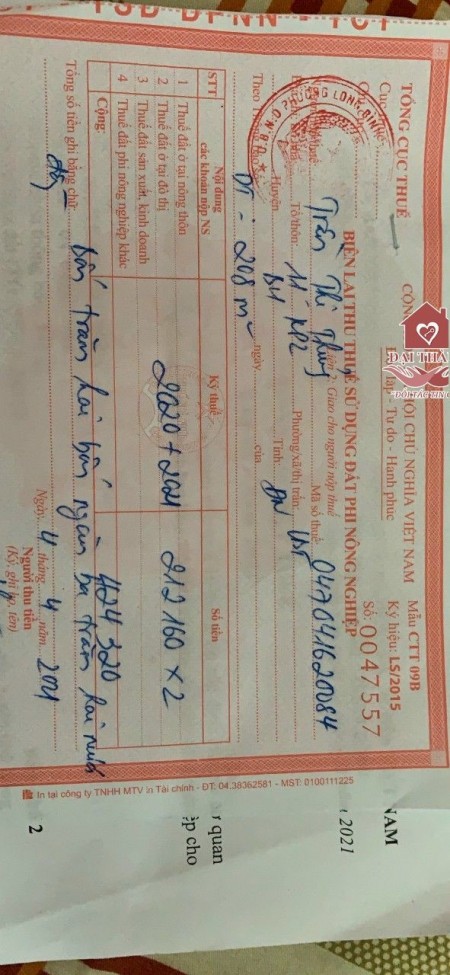 TỔNG CỤC THUẾ
CỘNG HỘI CHỦ NGHĨA VIỆT NAM
Tự do - Hạnh phúc
Mẫu CTT 09B
Ký hiệu: LS/2015
Số: 0047557
BIÊN LAI THU THUẾ SỬ DỤNG ĐẤT PHI NÔNG NGHIỆP
Liên 2: Giao cho người nộp thuế
Trần Thị Thủy
Mã số thuế: 047041620084
Tổ/thôn: 11 KP2
Phường/xã/thị trấn:
Huyện: BH
Tỉnh: ĐN
Theo
ngày
của
DT: 208 m
STT
Nội dung các khoản nộp NS
Kỳ thuế
Số tiền
1 Thuế đất ở tại nông thôn
2 Thuế đất ở tại đô thị 2020 + 2021 212 160 x 2
3 Thuế đất sản xuất, kinh doanh
4 Thuế đất phi nông nghiệp khác
Cộng: 424 320
Tổng số tiền ghi bằng chữ: Bốn trăm hai bốn ngàn ba trăm hai mươi
đồng
Ngày 4 tháng 4 năm 2021
Người thu tiền
(Ký, ghi họ, tên)
In tại công ty TNHH MTV In Tài chính - ĐT: 04.38362581 - MST: 0100111225
NAM
2021
quan
ệp cho
2
ĐẠI THÀ